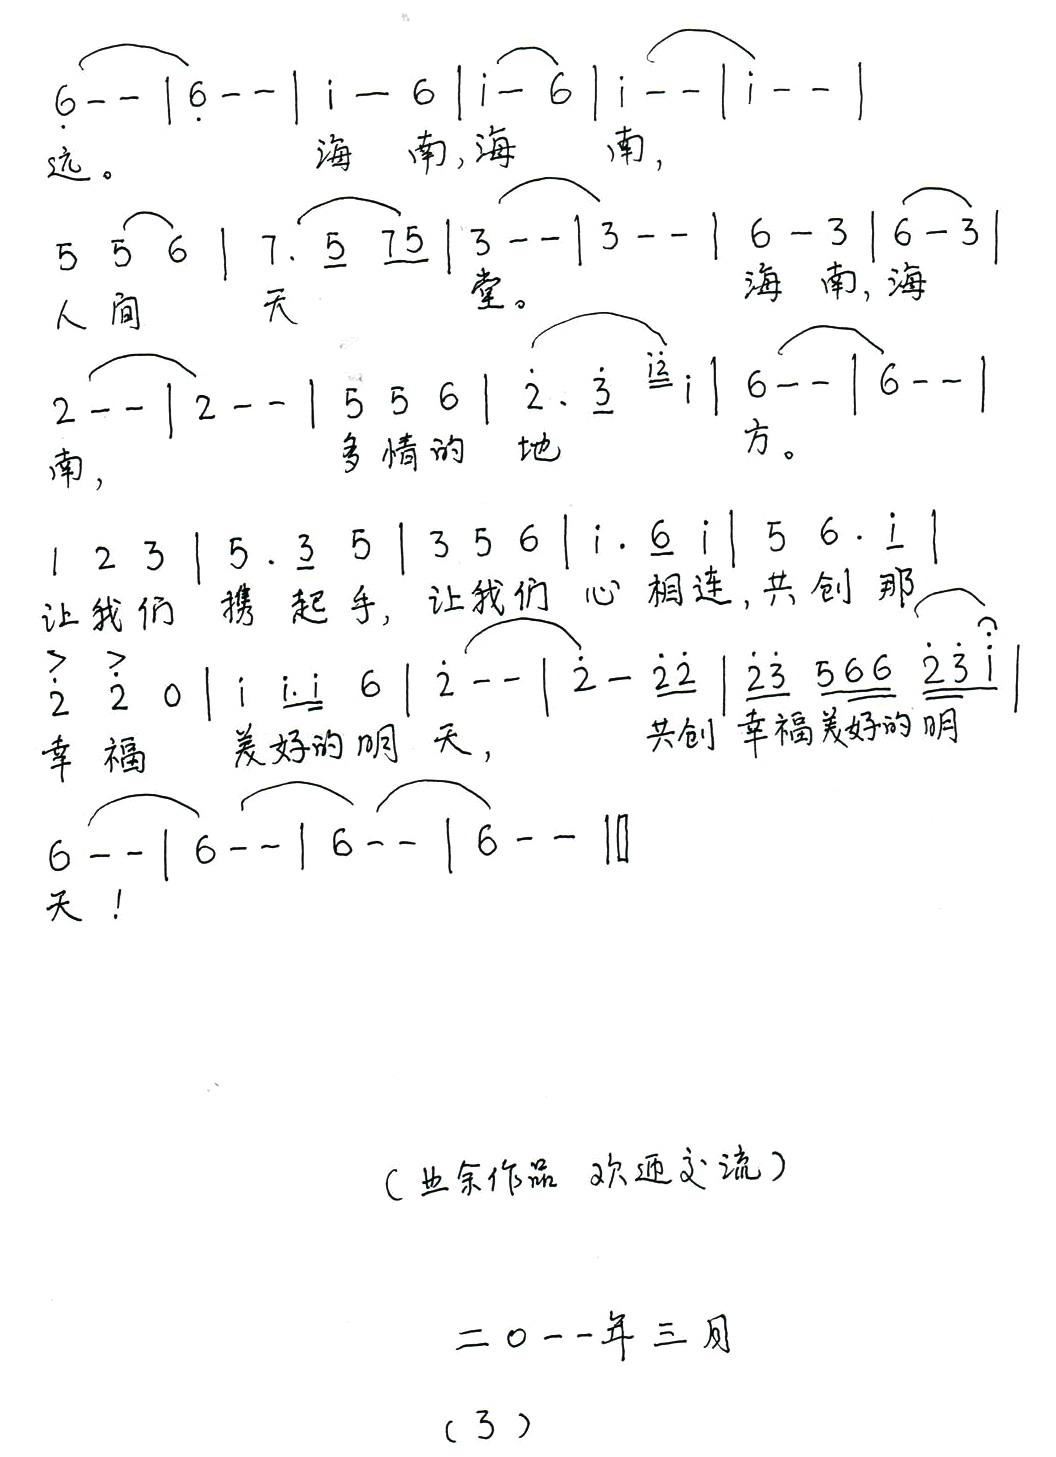 6̣ - - | 6̣ - - | i — 6 | i - 6 | i - - | i - - |
远。 海 南,海 南,
5 5 6 | 7. 5 75 | 3 - - | 3 - - | 6 - 3 | 6 - 3 |
人间 天 堂。 海 南,海
2 - - | 2 - - | 5 5 6 | 2̇ . 3̇ i2̇ i | 6 - - | 6 - - |
南, 多情的 地 方。
1 2 3 | 5 . 3 5 | 3 5 6 | i . 6 i | 5 6 . i |
让我们 携 起 手, 让我们 心 相连,共创 那
> >
2̇ 2̇ 0 | i i.i 6 | 2̇ - - | 2̇ - 2̇2̇ | 2̇3̇ 566 2̇3̇i |
幸 福 美好的明 天, 共创 幸福美好的明
6 - - | 6 - - | 6 - - | 6 - - ‖
天!
(业余作品 欢迎交流)
二〇一一年三月
(3)